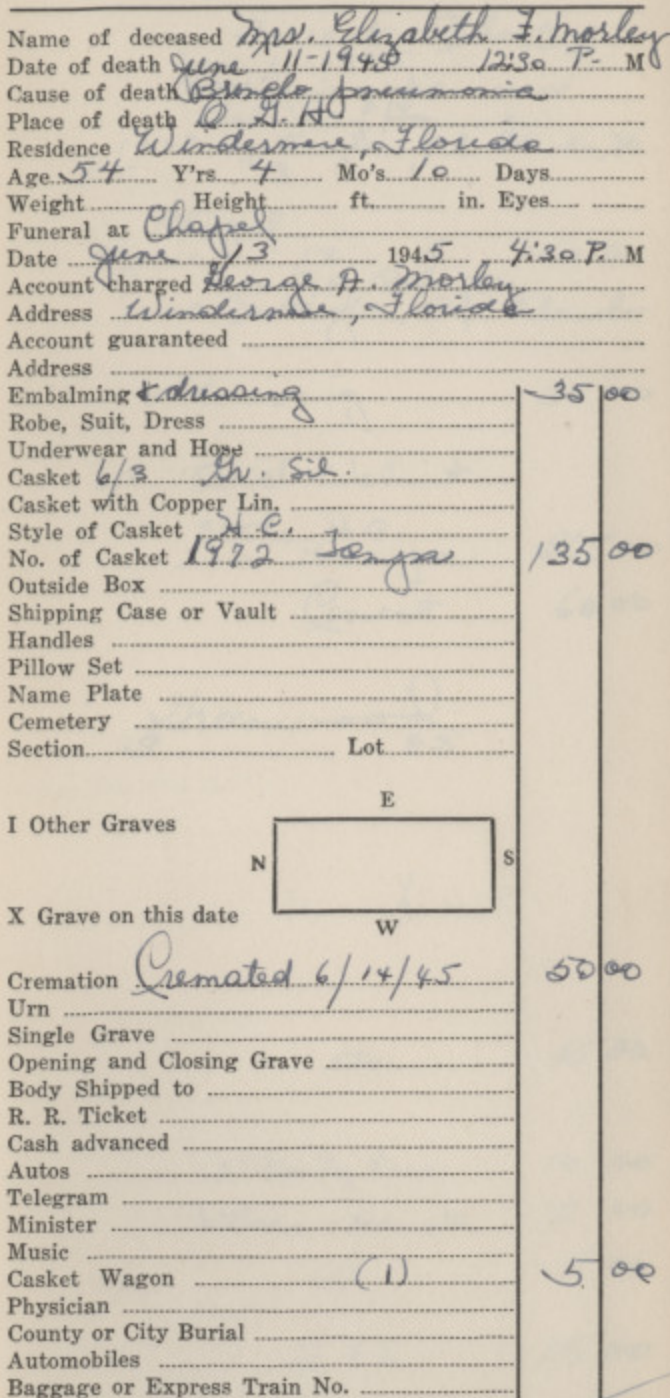 Name of deceased Mrs. Elizabeth F. Morley
Date of death June 11-1945 12:30 P- M
Cause of death Broncho pneumonia
Place of death O. G. H
Residence Windermere, Florida
Age 54 Y'rs 4 Mo's 10 Days
Weight Height ft. in. Eyes
Funeral at Chapel
Date June 13 1945 4:30 P. M
Account charged George A. Morley
Address Windermere, Florida
Account guaranteed
Address
Embalming & dressing 35 00
Robe, Suit, Dress
Underwear and Hose
Casket 6/3 Gr. Sil.
Casket with Copper Lin.
Style of Casket H.C.
No. of Casket 1972 Tampa 135 00
Outside Box
Shipping Case or Vault
Handles
Pillow Set
Name Plate
Cemetery
Section Lot
E
I Other Graves
N S
X Grave on this date
W
Cremation Cremated 6/14/45 50 00
Urn
Single Grave
Opening and Closing Grave
Body Shipped to
R. R. Ticket
Cash advanced
Autos
Telegram
Minister
Music
Casket Wagon (1) 5 00
Physician
County or City Burial
Automobiles
Baggage or Express Train No.